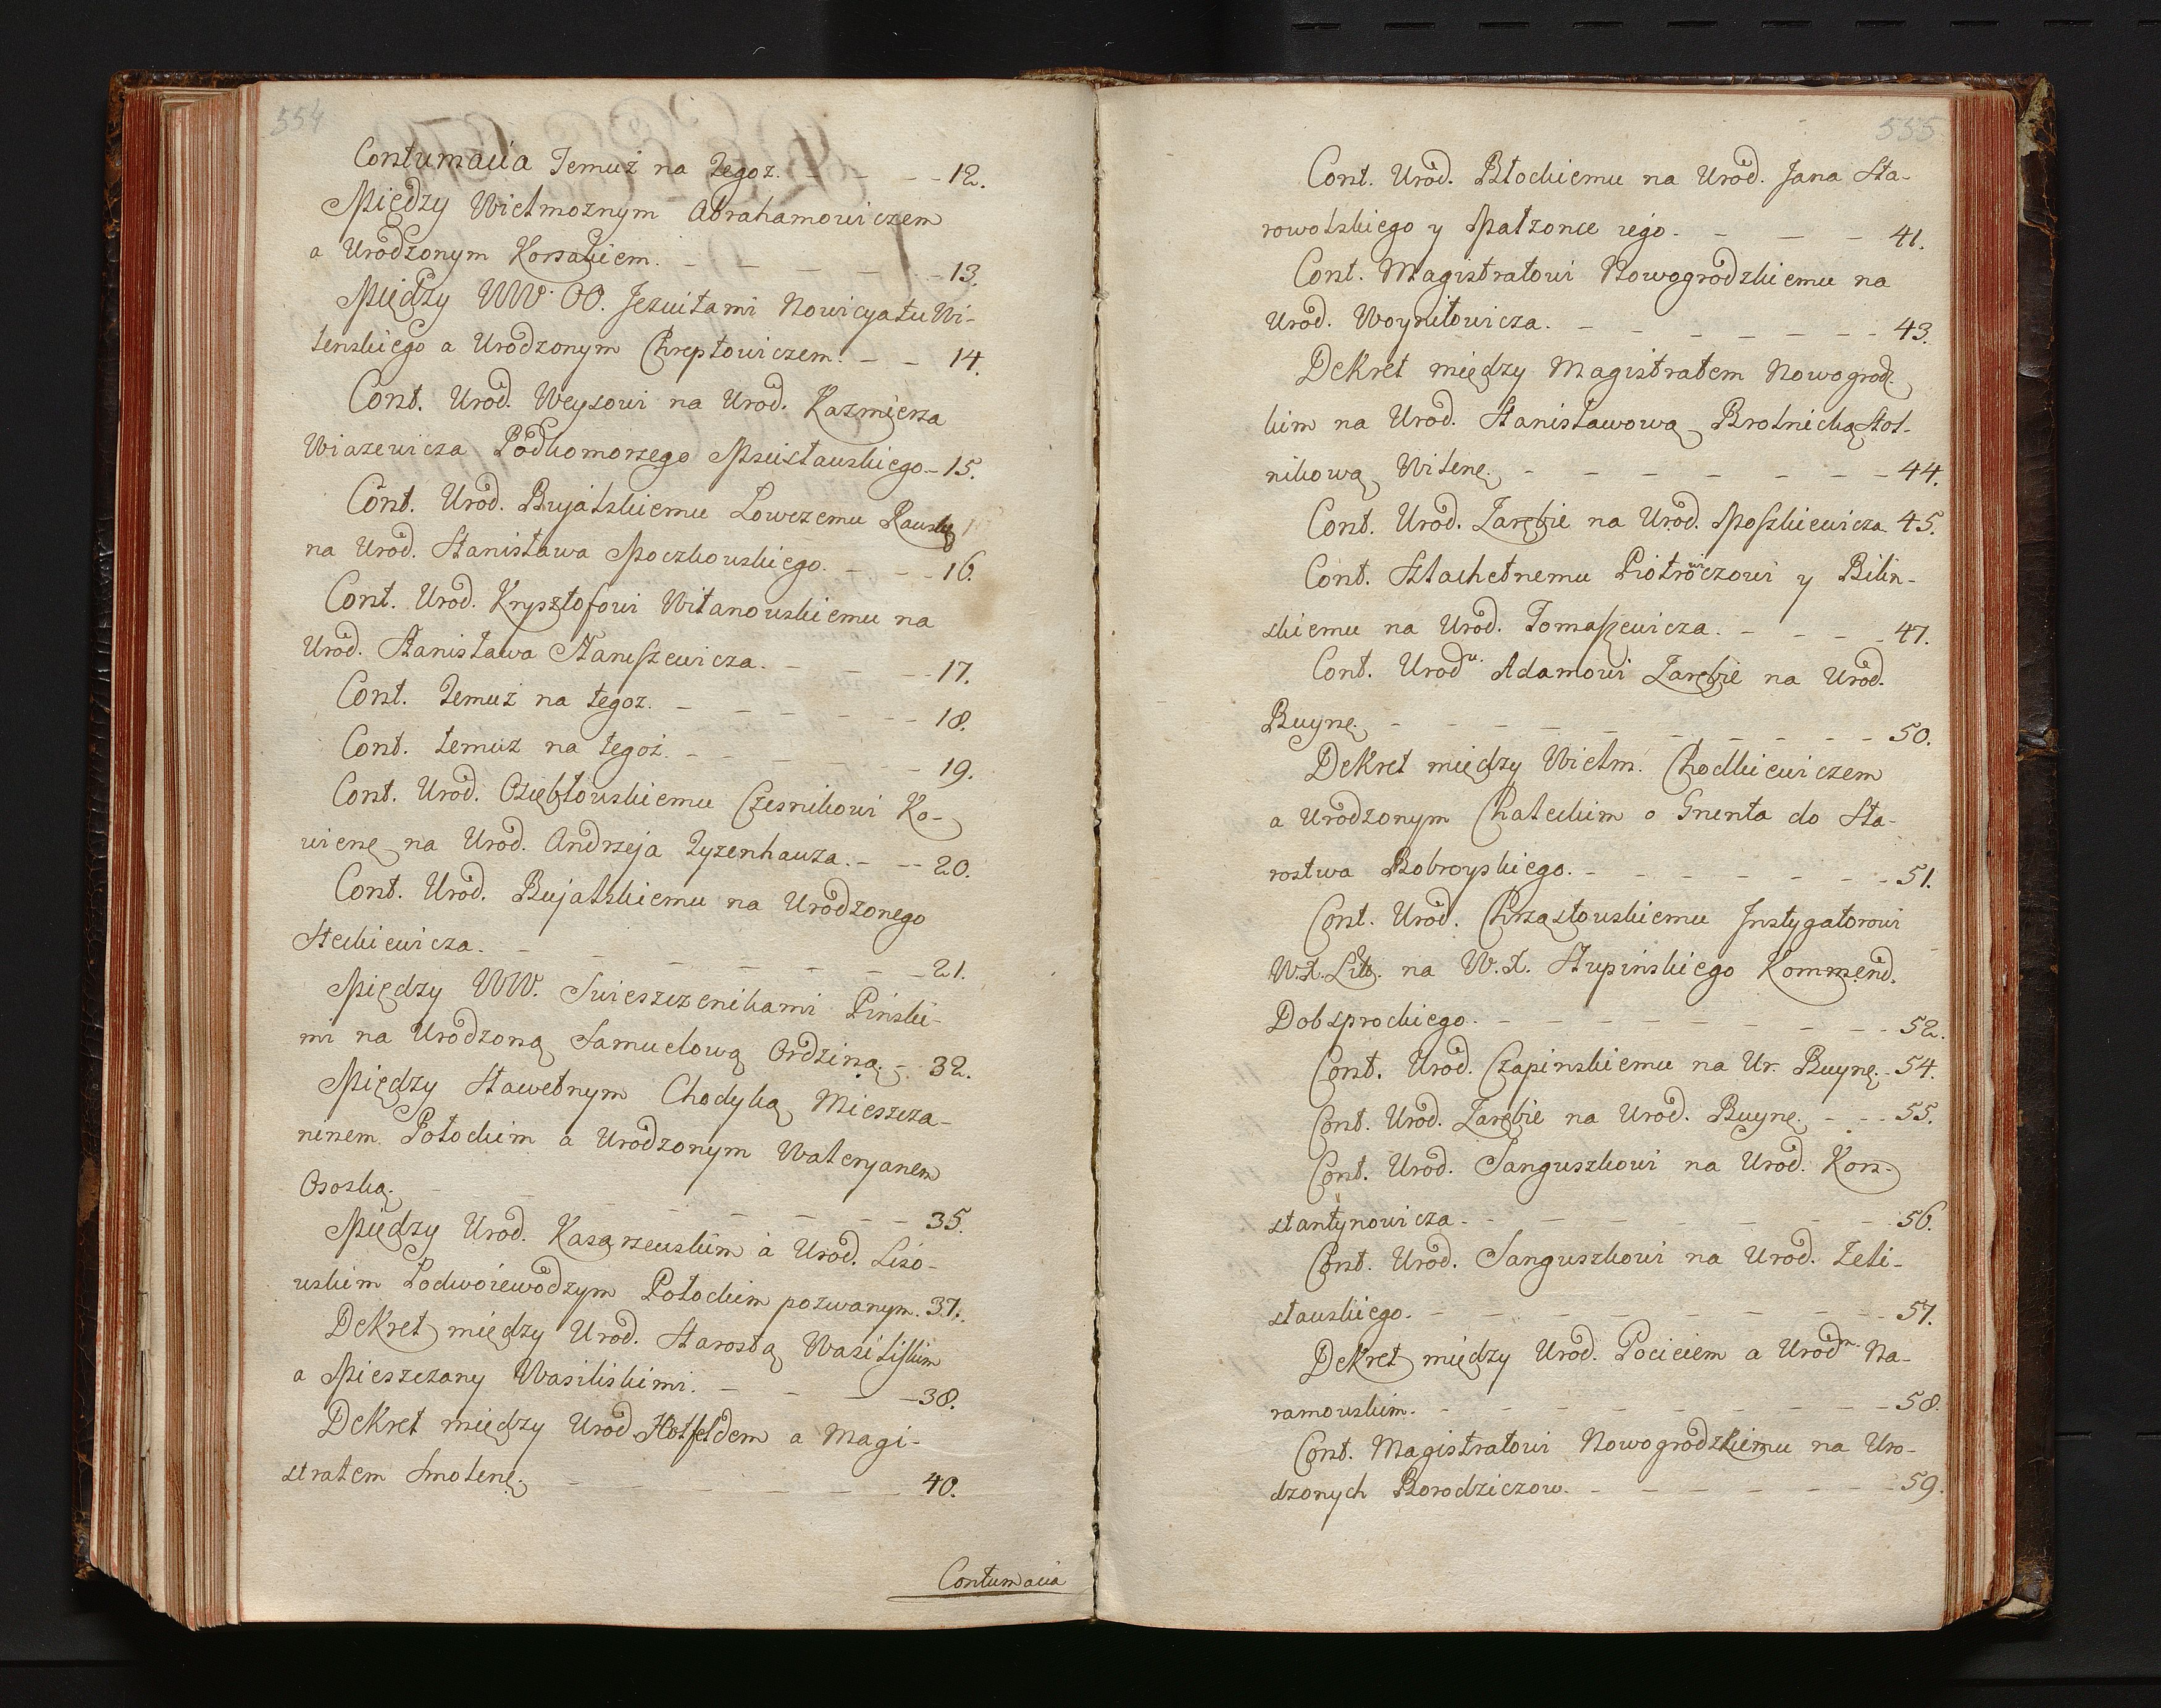 554
Contumacia Temuż na Tegoz. - - - 12.
Między Wielmoznym Abrahamowiczem
a Urodzonym Korsakiem. - - - - - 13.
Między WW. OO. Jezuitami Nowicyatu Wi-
lenskiego a Urodzonym Chreptowiczem. - - 14.
Cont. Urod. Weysowi na Urod. Kazmierza
Wiazewicza Podkomorzego Mscisławskiego - 15.
Cont. Urod. Bujalskiemu Łowczemu Rawskᵘ
na Urod. Stanisława Moczkowskiego. - - - 16.
Cont. Urod. Krysztofowi Witanowskiemu na
Urod. Stanisława Staniszewicza. - - - - 17.
Cont. Temuż na tegoz. - - - - - - 18.
Cont. temuz na tegoż. - - - - - - 19.
Cont. Urod. Oziębłowskiemu Czesnikowi Ko-
wienᵉ na Urod. Andrzeja Tyzenhauza. - - - 20.
Cont. Urod. Bujalskiemu na Urodzonego
Steckiewicza. - - - - - - - 21.
Między WW. Swieszczenikami Pinski-
mi na Urodzoną Samuelową Ordziną. - 32.
Między Sławetnym Chodyką Mieszcza-
ninem Połockim a Urodzonym Waleryanem
Ososką. - - - - - - - 35.
Między Urod. Kasarzewskim a Urod. Liso-
wskim Podwoiewodzym Połockim pozwanym. 37.
Dekret między Urod. Starostą Wasiliskim
a Mieszczany Wasiliskimi. - - - - 38.
Dekret między Urod. Hotfeldem a Magi-
stratem Smolenᵉ. - - - - - - 40.
Contumacia
555
Cont. Urod. Błockiemu na Urod. Jana Sta-
rowolskiego y Małzonce iego. - - - - 41.
Cont. Magistratowi Nowogrodzkiemu na
Urod. Woyniłowicza. - - - - - - - 43.
Dekret między Magistratem Nowogrodz-
kim na Urod. Stanisławową Brolnicką Stol-
nikową Wilenᵉ. - - - - - - - 44.
Cont. Urod. Zarębie na Urod. Moszkiewicza 45.
Cont. Szlachetnemu Piotrowiczowi y Bilin-
skiemu na Urod. Tomaszewicza. - - - - 47.
Cont. Urodᵘ. Adamowi Zarębie na Urod.
Buynę. - - - - - - - - - 50.
Dekret między Wielm. Chodkiewiczem
a Urodzonym Chaleckim o Grunta do Sta-
rostwa Bobroyskiego. - - - - - - - 51.
Cont. Urod. Chrząstowskiemu Instygatorowi
W.X. Litt. na W.X. Słupińskiego Kommend.
Dobsprockiego. - - - - - - - - 52.
Cont. Urod. Czapinskiemu na Ur. Buynę. - 54.
Cont. Urod. Zarębie na Urod. Buynę. - - - 55.
Cont. Urod. Sanguszkowi na Urod. Kon-
stantynowicza. - - - - - - - - 56.
Cont. Urod. Sanguszkowi na Urod. Zeli-
sławskiego. - - - - - - - - - 57.
Dekret między Urod. Pocieiem a Urodᵐ. Na-
ramowskim. - - - - - - - - - 58.
Cont. Magistratowi Nowogrodzkiemu na Uro-
dzonych Borodziczow. - - - - - - - 59.